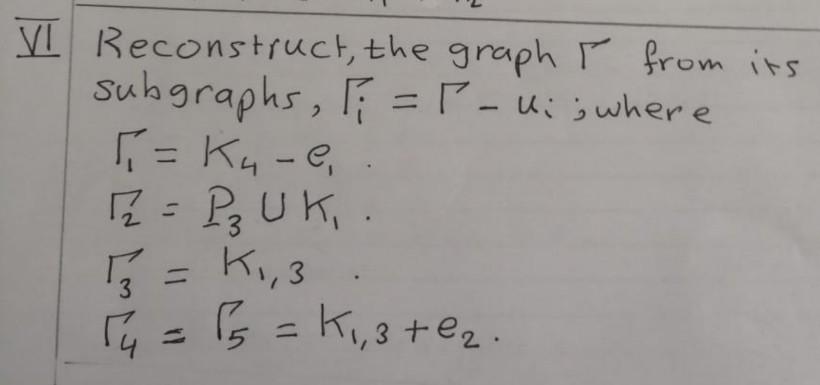 VI Reconstruct, the graph Γ from its
subgraphs, Γi = Γ - ui ; where
Γ1 = K4 - e1 .
Γ2 = P3 ∪ K1 .
Γ3 = K1,3 .
Γ4 = Γ5 = K1,3 + e2 .